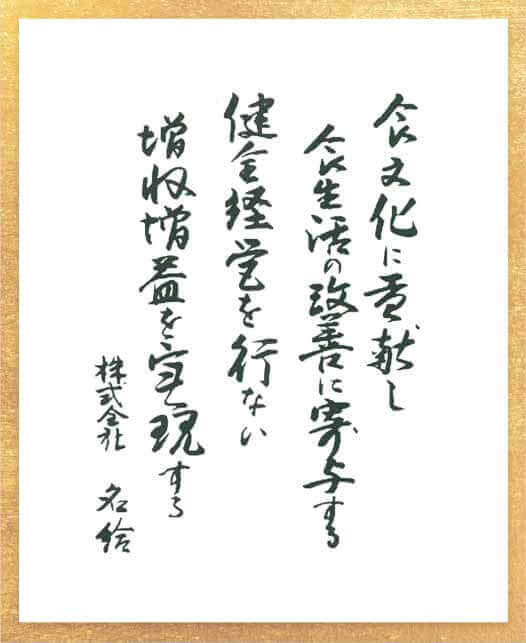 食文化に貢献し
食生活の改善に寄与する
健全経営を行ない
増収増益を実現する
株式会社 名給